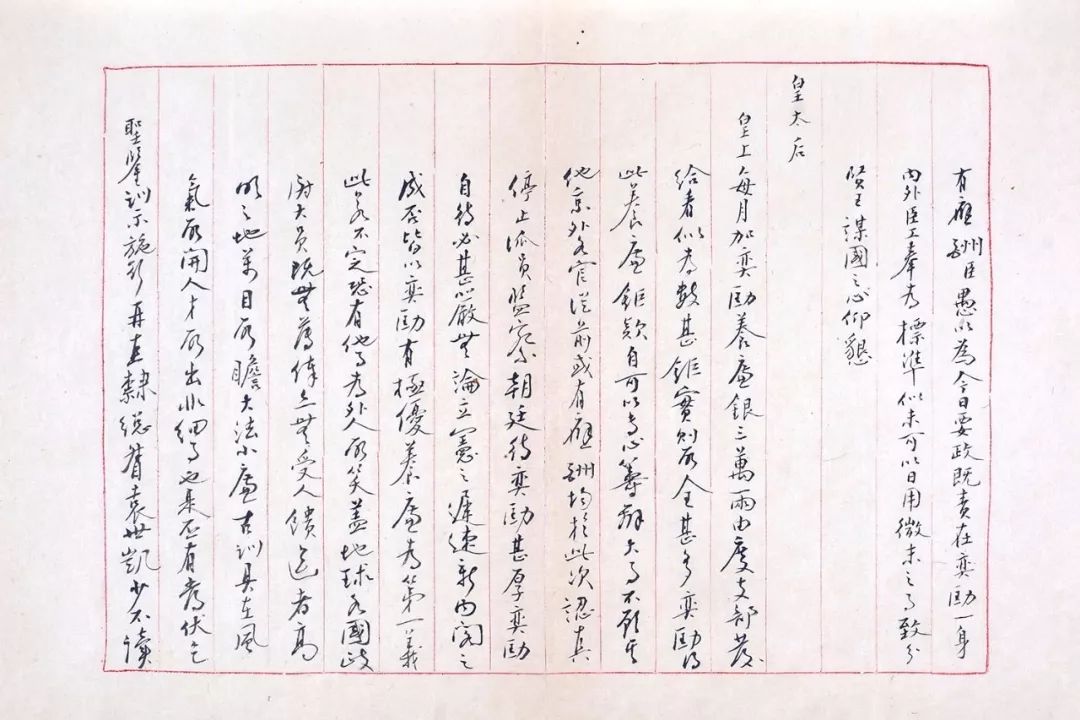 有應酬臣愚以為今日要政既責在奕劻一身
內外臣工奉為標準似未可以日用微末之事致分
賢王謀國之心仰懇
皇太后
皇上每月加奕劻養廉銀三萬兩由度支部發
給看似為數甚鉅實則所全甚多奕劻得
此養廉鉅款自可以專心籌辦大事不顧其
他京外各官從前或有應酬均於此次認真
停止派員監察朝廷待奕劻甚厚奕劻
自待必甚嚴無論立憲之遲速新內閣之
成否皆以奕劻有極優養廉為第一義
此義不定恐有他事為外人所笑蓋地球各國政
府大員既無薄俸亦無受人餽送者高
明之地萬目所瞻大法小廉古訓具在風
氣所開人才所出非細事也是否有當伏乞
聖鑒訓示施行再直隸總督袁世凱少不讀